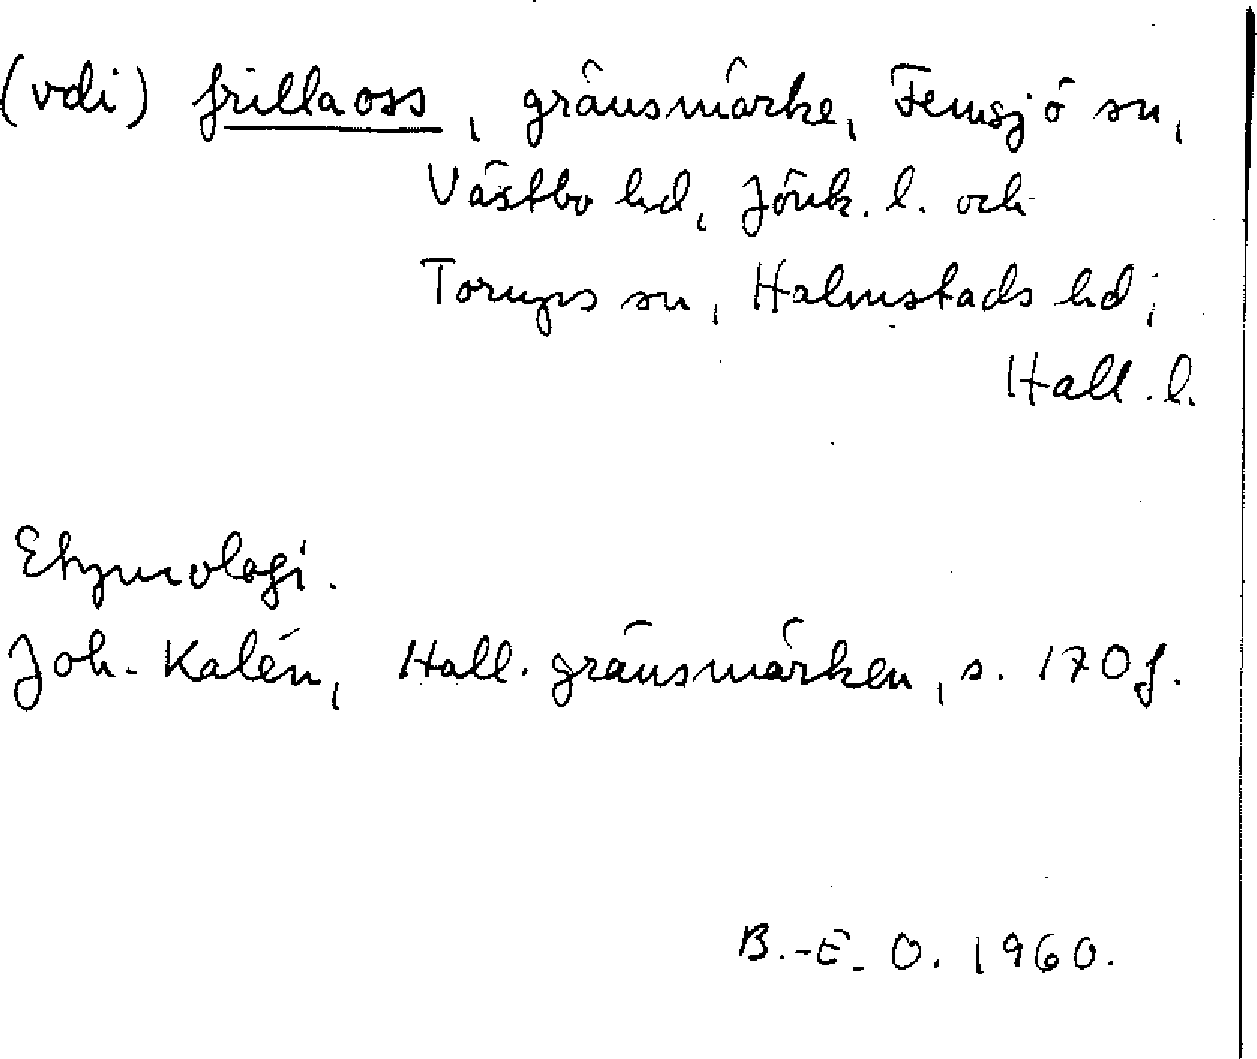 (vdi) frillaoss, gränsmärke, Femsjö sn,
Västbo hd, Jönk. l. och
Torups sn, Halmstads hd;
Hall. l.
Etymologi.
Joh. Kalén, Hall. gränsmärken, s. 170 f.
B.-E. O. 1960.